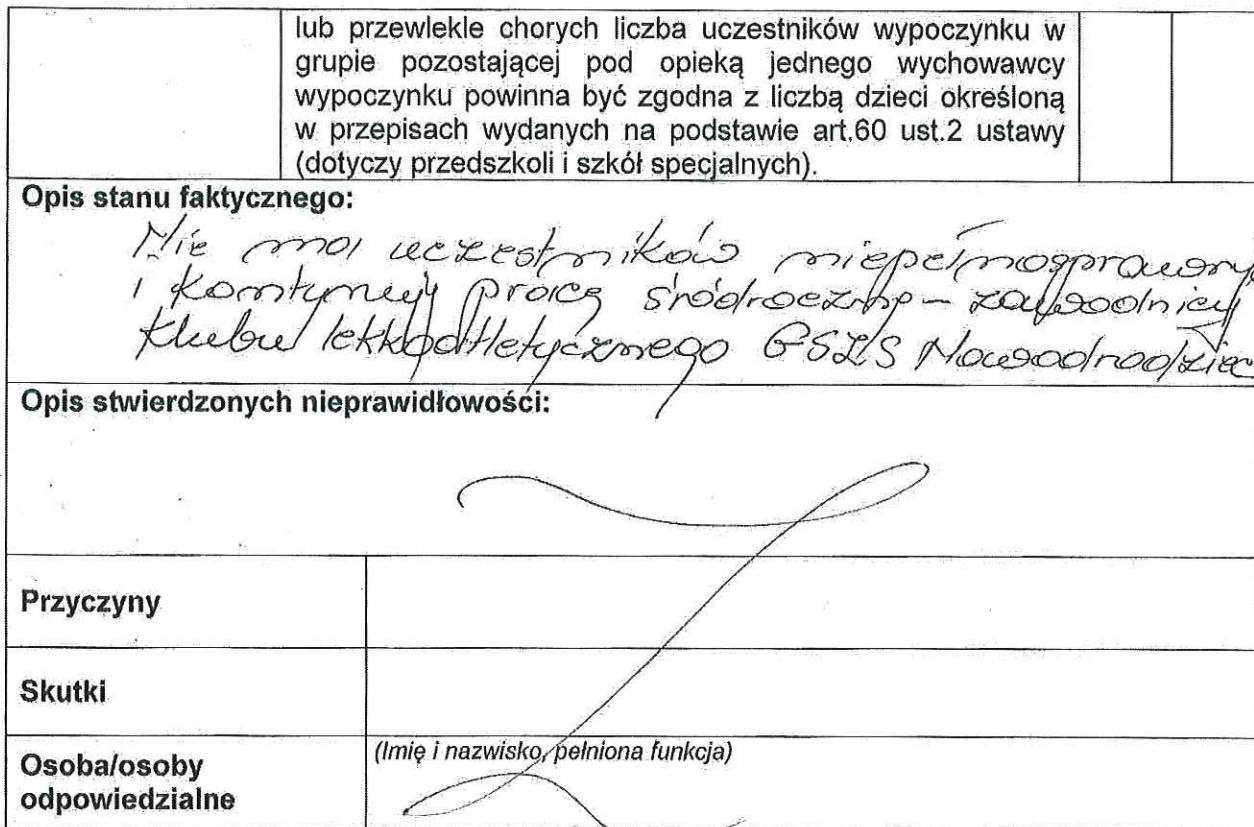 lub przewlekle chorych liczba uczestników wypoczynku w
grupie pozostającej pod opieką jednego wychowawcy
wypoczynku powinna być zgodna z liczbą dzieci określoną
w przepisach wydanych na podstawie art.60 ust.2 ustawy
(dotyczy przedszkoli i szkół specjalnych).
Opis stanu faktycznego:
Nie ma uczestników niepełnosprawny
i kontynuują pracę śródroczną - zawodnicy
Klubu lekkoatletycznego GSZS
Opis stwierdzonych nieprawidłowości:
Przyczyny
Skutki
(Imię i nazwisko, pełniona funkcja)
Osoba/osoby
odpowiedzialne